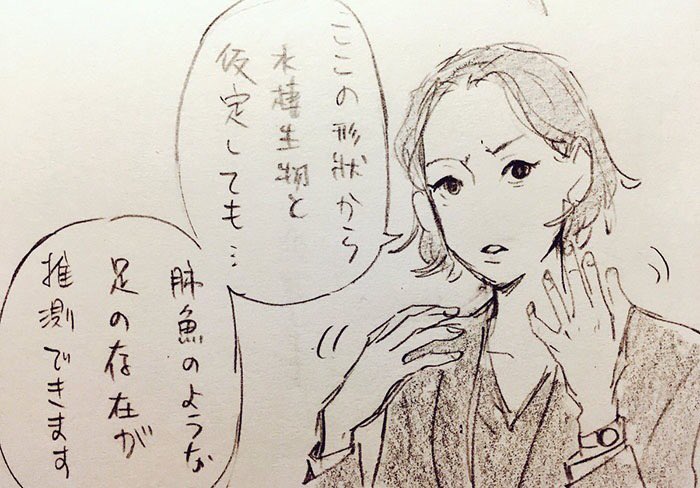 ここの形状から
水棲生物と
仮定しても…
肺魚のような
足の存在が
推測できます